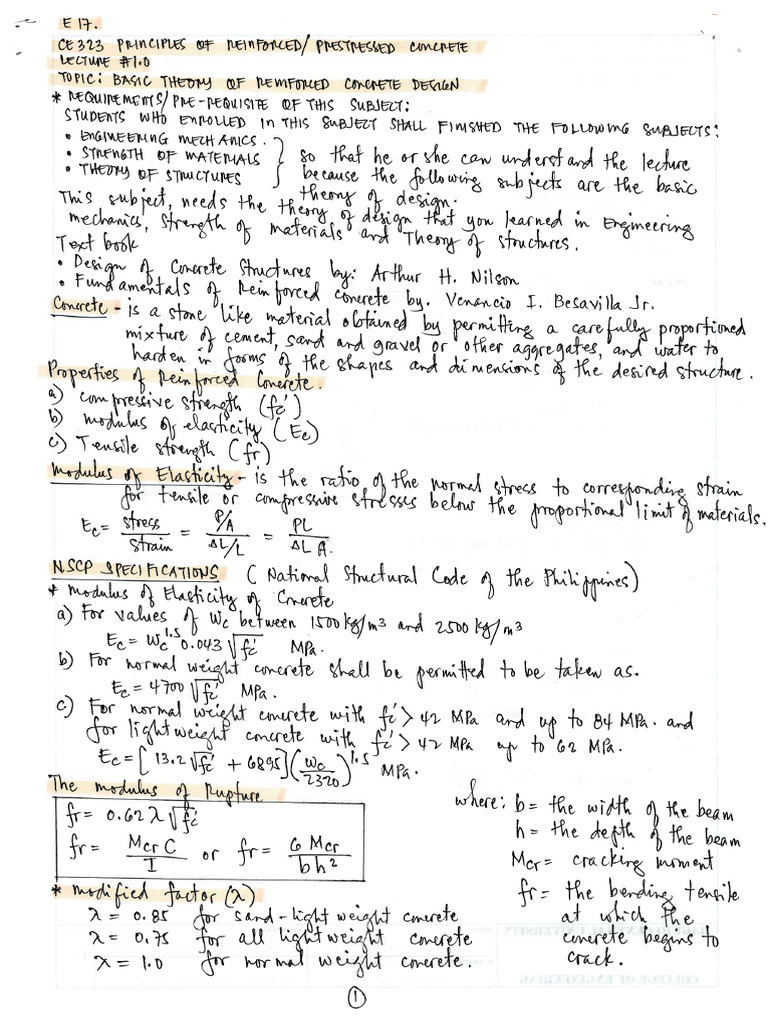 E 17.
CE 323 PRINCIPLES OF REINFORCED/PRESTRESSED CONCRETE
LECTURE #1.0
TOPIC: BASIC THEORY OF REINFORCED CONCRETE DESIGN
* REQUIREMENTS/PRE-REQUISITE OF THIS SUBJECT:
STUDENTS WHO ENROLLED IN THIS SUBJECT SHALL FINISHED THE FOLLOWING SUBJECTS:
• ENGINEERING MECHANICS.
• STRENGTH OF MATERIALS
• THEORY OF STRUCTURES
} so that he or she can understand the lecture
because the following subjects are the basic
theory of design.
This subject, needs the theory of design that you learned in Engineering
mechanics, strength of materials and Theory of structures.
Text book
• Design of Concrete Structures by: Arthur H. Nilson
• Fundamentals of Reinforced concrete by. Venancio I. Besavilla Jr.
Concrete - is a stone like material obtained by permitting a carefully proportioned
mixture of cement, sand and gravel or other aggregates, and water to
harden in forms of the shapes and dimensions of the desired structure.
Properties of Reinforced Concrete.
a) compressive strength (fc')
b) modulus of elasticity (Ec)
c) Tensile strength (fr)
Modulus of Elasticity - is the ratio of the normal stress to corresponding strain
for tensile or compressive stresses below the proportional limit of materials.
Ec = stress/strain = (P/A)/(ΔL/L) = PL/ΔL A.
NSCP SPECIFICATIONS (National Structural Code of the Philippines)
* modulus of Elasticity of Concrete
a) For values of Wc between 1500 kg/m³ and 2500 kg/m³
Ec = Wc^1.5 0.043 √fc' MPa.
b) For normal weight concrete shall be permitted to be taken as.
Ec = 4700 √fc' MPa.
c) For normal weight concrete with fc' > 42 MPa and up to 84 MPa. and
for lightweight concrete with fc' > 42 MPa up to 62 MPa.
Ec = [13.2 √fc' + 6895] (Wc/2320)^1.5 MPa.
The modulus of Rupture
fr = 0.62 λ √fc'
fr = Mcr C/I or fr = 6 Mcr/bh²
where: b = the width of the beam
h = the depth of the beam
Mcr = cracking moment
fr = the bending tensile
at which the
concrete begins to
crack.
* modified factor (λ)
λ = 0.85 for sand-light weight concrete
λ = 0.75 for all light weight concrete
λ = 1.0 for normal weight concrete.
1